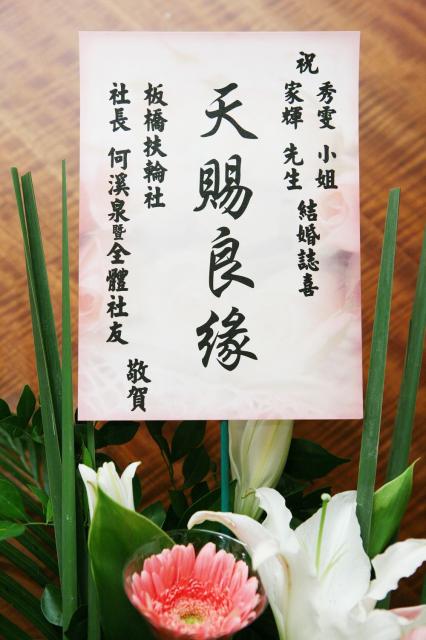 祝
秀雯 小姐
家輝 先生
結婚誌喜
天賜良緣
板橋扶輪社
社長 何溪泉暨全體社友
敬賀